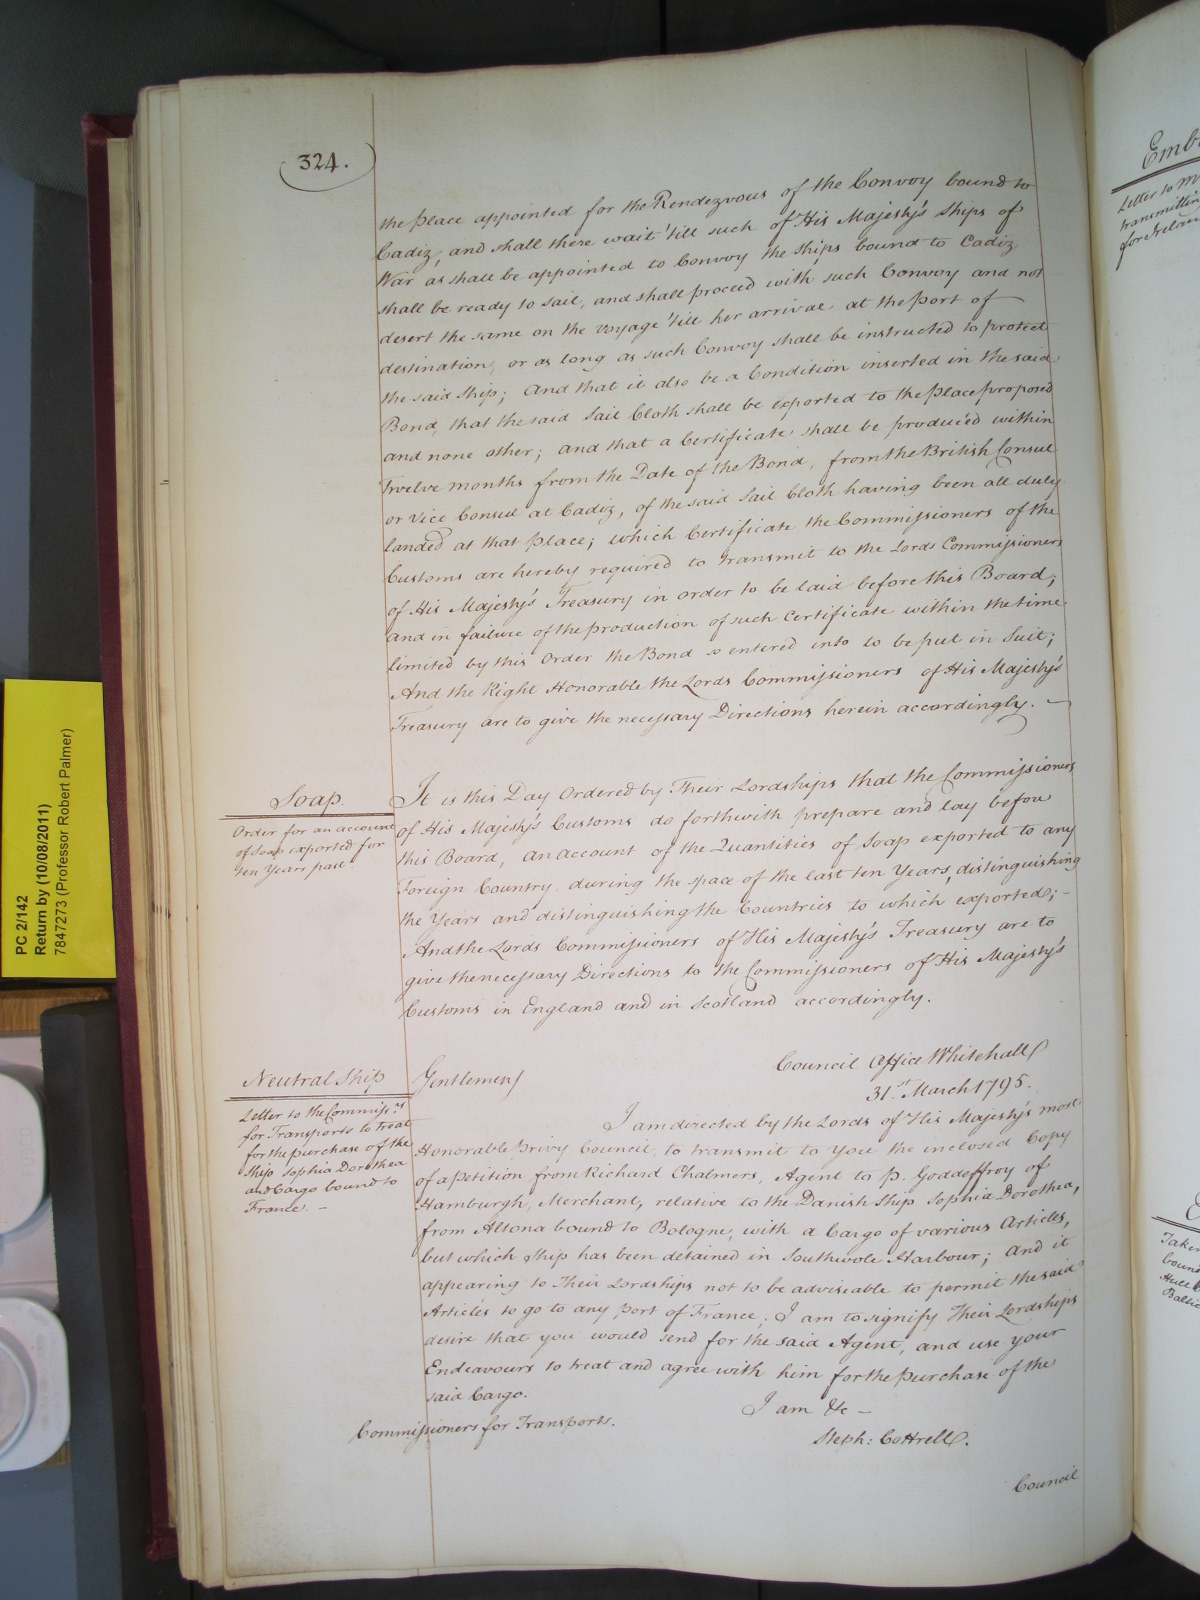 324.
the place appointed for the Rendezvous of the Convoy bound to
Cadiz, and shall there wait 'till such of His Majesty's Ships of
War as shall be appointed to Convoy the Ships bound to Cadiz
shall be ready to sail, and shall proceed with such Convoy and not
desert the same on the Voyage 'till her arrival at the Port of
destination, or as long as such Convoy shall be instructed to protect
the said Ship; And that it also be a Condition inserted in the said
Bond, that the said Sail Cloth shall be exported to the Place proposed
and none other; and that a Certificate shall be produced within
Twelve months from the Date of the Bond, from the British Consul
or Vice Consul at Cadiz, of the said Sail Cloth having been all duly
landed at that Place; which Certificate the Commissioners of the
Customs are hereby required to transmit to the Lords Commissioners
of His Majesty's Treasury in order to be laid before this Board;
and in failure of the production of such Certificate within the time
limited by this Order the Bond so entered into to be put in Suit;
And the Right Honorable the Lords Commissioners of His Majesty's
Treasury are to give the necessary Directions herein accordingly.
Soap.
Order for an account
of Soap exported for
ten Years past
It is this Day Ordered by Their Lordships that the Commissioners
of His Majesty's Customs do forthwith prepare and lay before
this Board, an account of the Quantities of Soap exported to any
Foreign Country during the space of the last ten Years, distinguishing
the Years and distinguishing the Countries to which exported; -
And the Lords Commissioners of His Majesty's Treasury are to
give the necessary Directions to the Commissioners of His Majesty's
Customs in England and in Scotland accordingly.
Neutral Ship
Letter to the Commiss.rs
for Transports to treat
for the purchase of the
Ship Sophia Dorothea
and Cargo bound to
France. -
Council Office Whitehall
31.st March 1795.
Gentlemen
I am directed by the Lords of His Majesty's most
Honorable Privy Council, to transmit to You the inclosed Copy
of a Petition from Richard Chalmers, Agent to P. Goddeffroy of
Hamburgh, Merchant, relative to the Danish Ship Sophia Dorothea,
from Altona bound to Bologne, with a Cargo of various Articles,
but which Ship has been detained in Southwole Harbour; And it
appearing to Their Lordships not to be adviseable to permit the said
Articles to go to any Port of France, I am to signify Their Lordships
desire that you would send for the said Agent, and use your
Endeavours to treat and agree with him for the Purchase of the
said Cargo.
I am &c -
Commissioners for Transports.
Steph: Cottrell.
Council
PC 2/142
Return by (10/08/2011)
7847273 (Professor Robert Palmer)
Letter to
transmitting
for Ireland